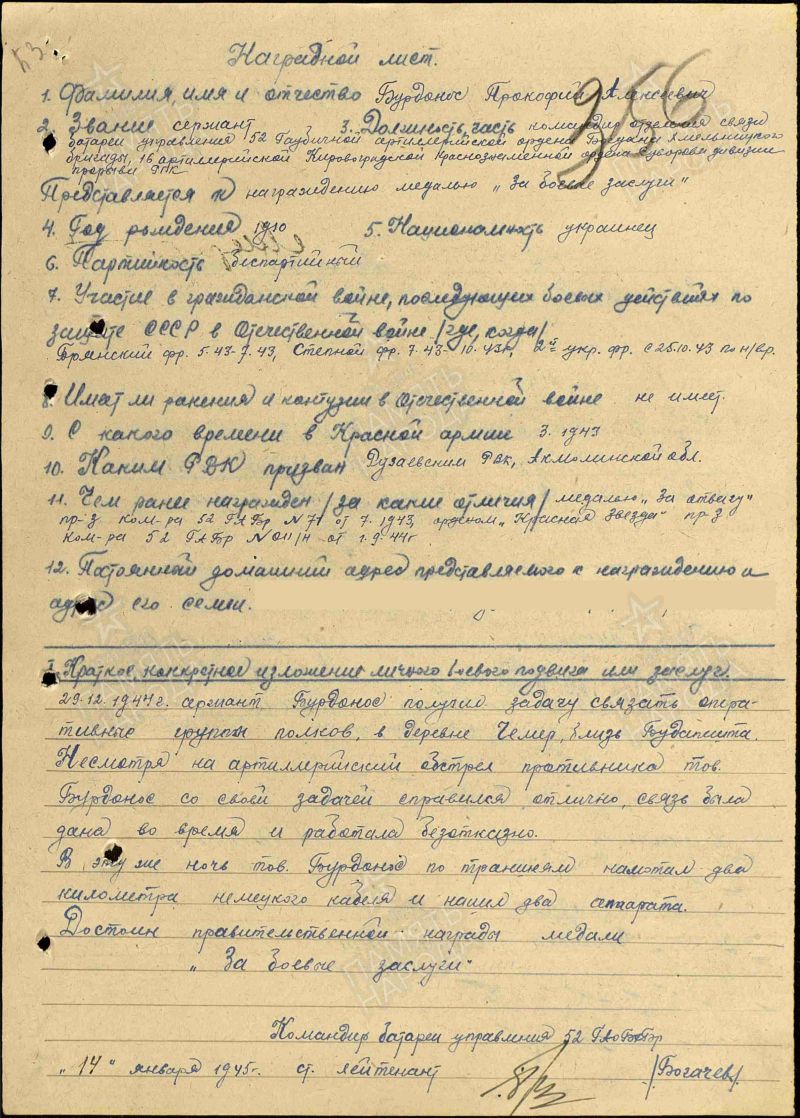 Наградной лист.
1. Фамилия, имя и отчество Бурдонос Прокофий Алексеевич
2. Звание сержант 3. Должность, часть командир отделения связи
батареи управления 52 Гаубичной артиллерийской ордена Богдана Хмельницкого
бригады, 16 артиллерийской Кировоградской Краснознаменной ордена Суворова дивизии
прорыва РГК
Представляется к награждению медалью „За боевые заслуги"
4. Год рождения 1910 5. Национальность украинец
6. Партийность беспартийный
7. Участие в гражданской войне, последующих боевых действиях по
защите СССР в Отечественной войне /где, когда/
Брянский фр. 5.43-7.43, Степной фр. 7.43-10.43г, 2й укр. фр. с 25.10.43 по н/вр.
8. Имат ли ранения и контузии в Отечественной войне не имеет.
9. С какого времени в Красной армии 3.1943
10. Каким РВК призван Рузаевским РВК, Акмолинской обл.
11. Чем ранее награжден /за какие отличия/ медалью „За отвагу"
пр-з ком-ра 52 ГАБр №7 от 7.1943, орденом „Красная Звезда" пр-з
ком-ра 52 ГАБр №011/н от 1.9.44г
12. Постоянный домашний адрес представляемого к награждению и
адрес его семьи.
I. Краткое конкретное изложение личного боевого подвига или заслуг.
29.12.1944г. сержант Бурдонос получил задачу связать опера-
тивные группы полков, в деревне Чемер, близь Будапешта.
Несмотря на артиллерийский обстрел противника тов.
Бурдонос со своей задачей справился отлично, связь была
дана во время и работала безотказно.
В эту же ночь тов. Бурдонос по траншеям намотал два
километра немецкого кабеля и нашел два аппарата.
Достоин правительственной награды медали
„За боевые заслуги"
Командир батареи управления 52
„14" января 1945г. ст. лейтенант /Богачев/